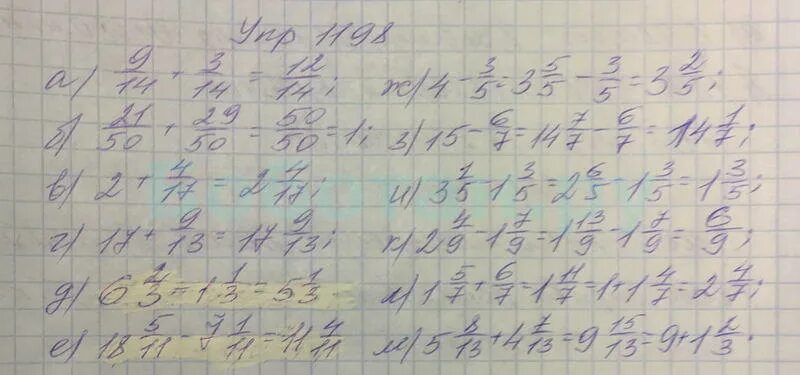 Упр 1198
а) 9/14 + 3/14 = 12/14;
б) 21/50 + 29/50 = 50/50 = 1;
в) 2 + 4/17 = 2 4/17;
г) 17 + 9/13 = 17 9/13;
д) 6 2/3 - 1 1/3 = 5 1/3
е) 18 5/11 - 7 1/11 = 11 4/11
ж) 4 - 3/5 = 3 5/5 - 3/5 = 3 2/5;
з) 15 - 6/7 = 14 7/7 - 6/7 = 14 1/7;
и) 3 1/5 - 1 3/5 = 2 6/5 - 1 3/5 = 1 3/5;
к) 2 4/9 - 1 7/9 = 1 13/9 - 1 7/9 = 6/9;
л) 1 5/7 + 6/7 = 1 11/7 = 1 + 1 4/7 = 2 4/7;
м) 5 8/13 + 4 7/13 = 9 15/13 = 9 + 1 2/3;